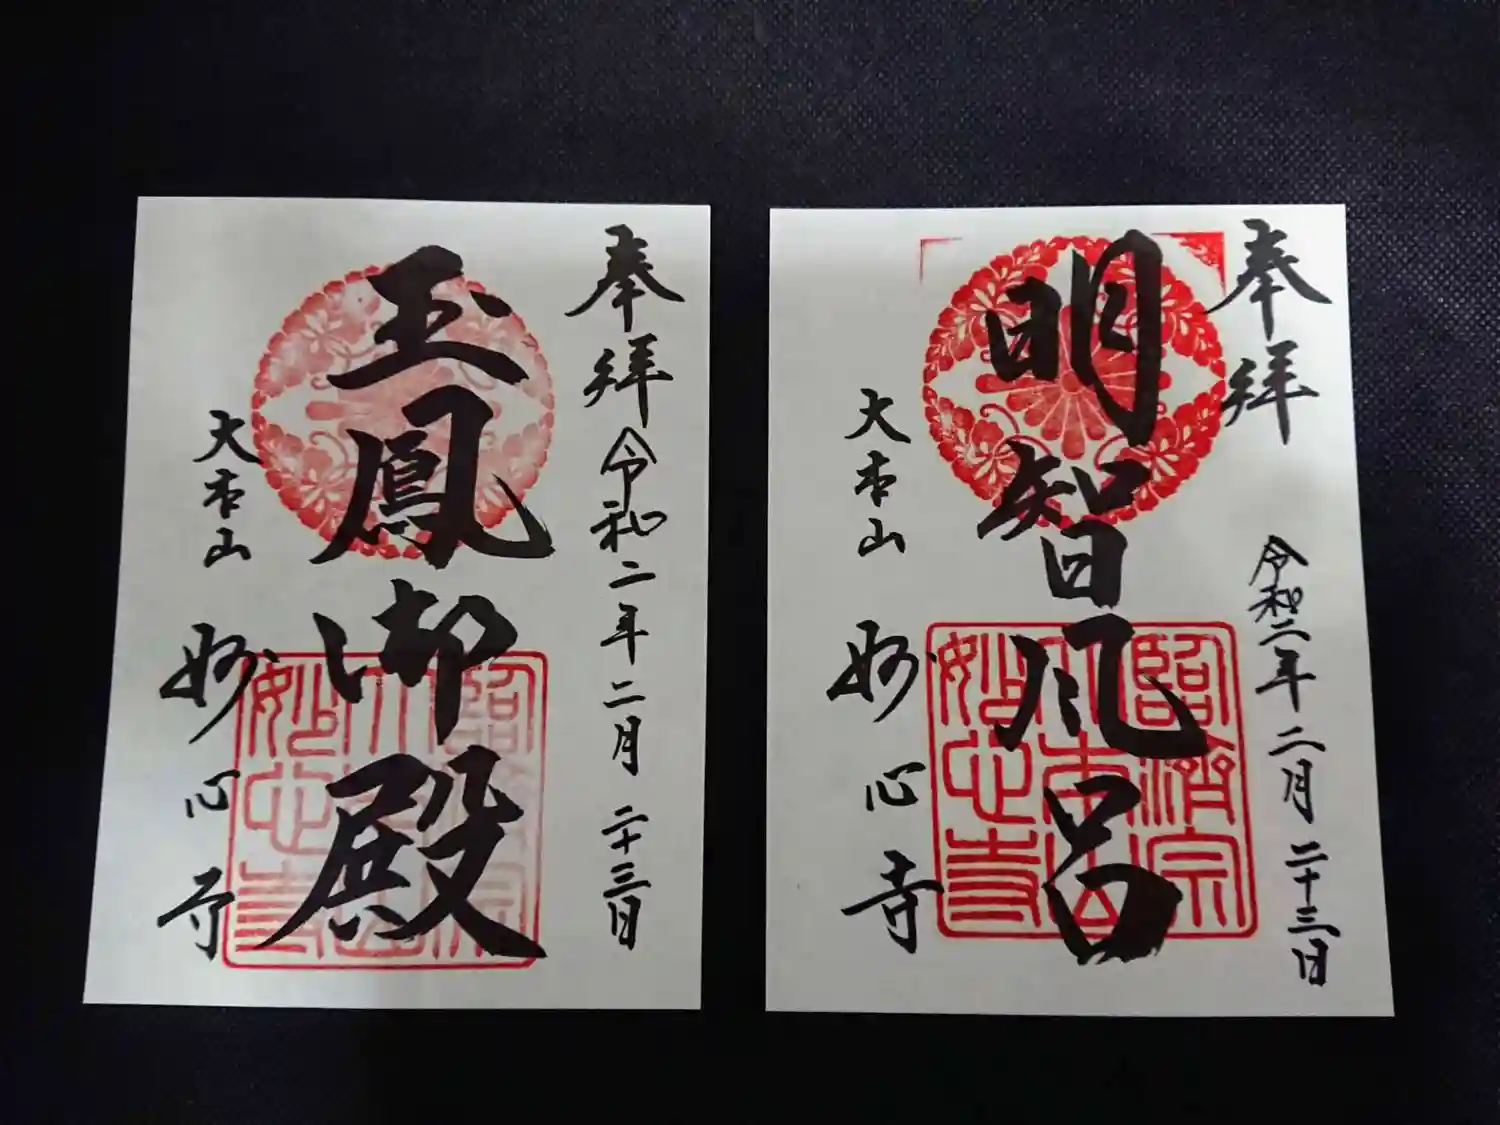 奉拝
令和二年二月二十三日
玉鳳御殿
大本山
妙心寺
臨済宗
大本山
妙心寺
奉拝
令和二年二月二十三日
明智風呂
大本山
妙心寺
臨済宗
大本山
妙心寺